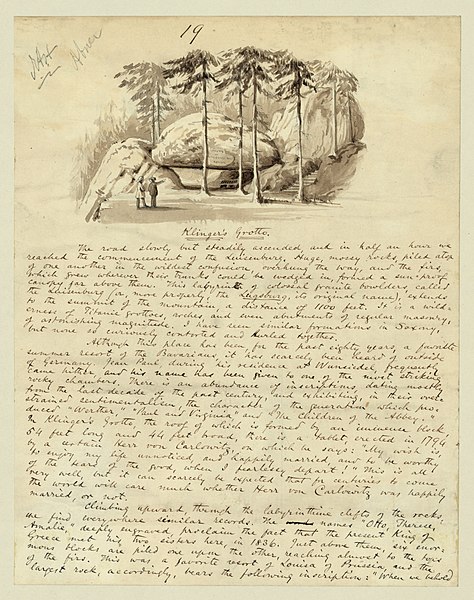 19
Klinger's Grotto.
The road slowly but steadily ascended, and in half an hour we
reached the commencement of the Luisenburg. Huge, mossy rocks, piled atop
of one another in the wildest confusion, overhung the way, and the firs,
which grew wherever their trunks could be wedged in, formed a sun-proof
canopy far above them. This labyrinth of colossal granite bowlders, called
the Luisenburg (or, more properly, the Lugsburg, its original name), extends
to the summit of the mountain, a distance of 1100 feet. It is a wild-
erness of Titanic grottoes, rocks, and even abutments of regular masonry,
of astonishing magnitude. I have seen similar formations in Saxony,
but none so curiously contorted and hurled together.
Although this place has been for the past eighty years, a favorite
summer resort of the Bavarians, it has scarcely been heard of outside
of Germany. Jean Paul during his residence at Wunsiedel, frequently
came hither, and his name has been given to one of the most striking
rocky chambers. There is an abundance of inscriptions, dating mostly
from the last decade of the past century, and exhibiting, in their over-
strained sentimentalism, the character of the generation which pro-
duced "Werther," "Paul and Virginia" and "The Children of the Abbey."
In Klinger's Grotto, the roof of which is formed by an immense block
54 feet long and 44 feet broad, there is a tablet, erected in 1794
by a certain Herr von Carlowitz, on which he says: "My wish is,
to enjoy my life unnoticed, and happily married, and to be worthy
of the tears of the good, when I fearlessly depart!" This is all
very well, but it can scarcely be expected that for centuries to come
the world will care much whether Herr von Carlowitz was happily
married, or not.
Climbing upward through the labyrinthine clefts of the rocks,
we find everywhere similar records. The names "Otto, Therese,
Amalie," deeply engraven, proclaim the fact that the present King of
Greece met his two sisters here in 1836. Just above them six enor-
mous blocks are piled one upon the other, reaching almost to the tops
of the firs. This was a favorite resort of Louisa of Prussia, and the
largest rock, accordingly, bears the following inscription: "When we behold